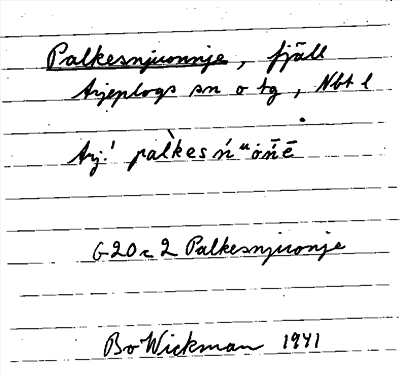 Palkesnjuonnje, fjäll
Arjeplogs sn o tg, Nbt l
Arj.! pàlkesń ᵘȯńē
G20c2 Palkesnjuonje
Bo Wickman 1941